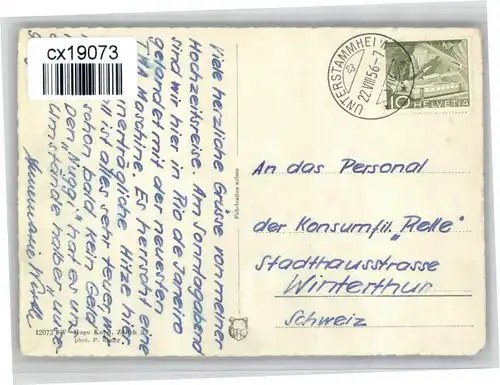 cx19073
Viele herzliche Grüsse von meiner
Hochzeitsreise. Am Sonntagabend
sind wir hier in Rio de Janeiro
gelandet mit der neuesten
Maschine. Es herrscht eine
unerträgliche Hitze hier
ist alles sehr teuer
schon bald kein Geld
Den "Muggi" hat es um
Umstände
Annemarie
12073
Hugo Kopp, Zürich
phot. P.
Fabrication suisse
UNTERSTAMMHEIM
22.VIII.56-7
10 HELVETIA
An das Personal
der Konsumfil. "Relle"
Stadthausstrasse
Winterthur
Schweiz